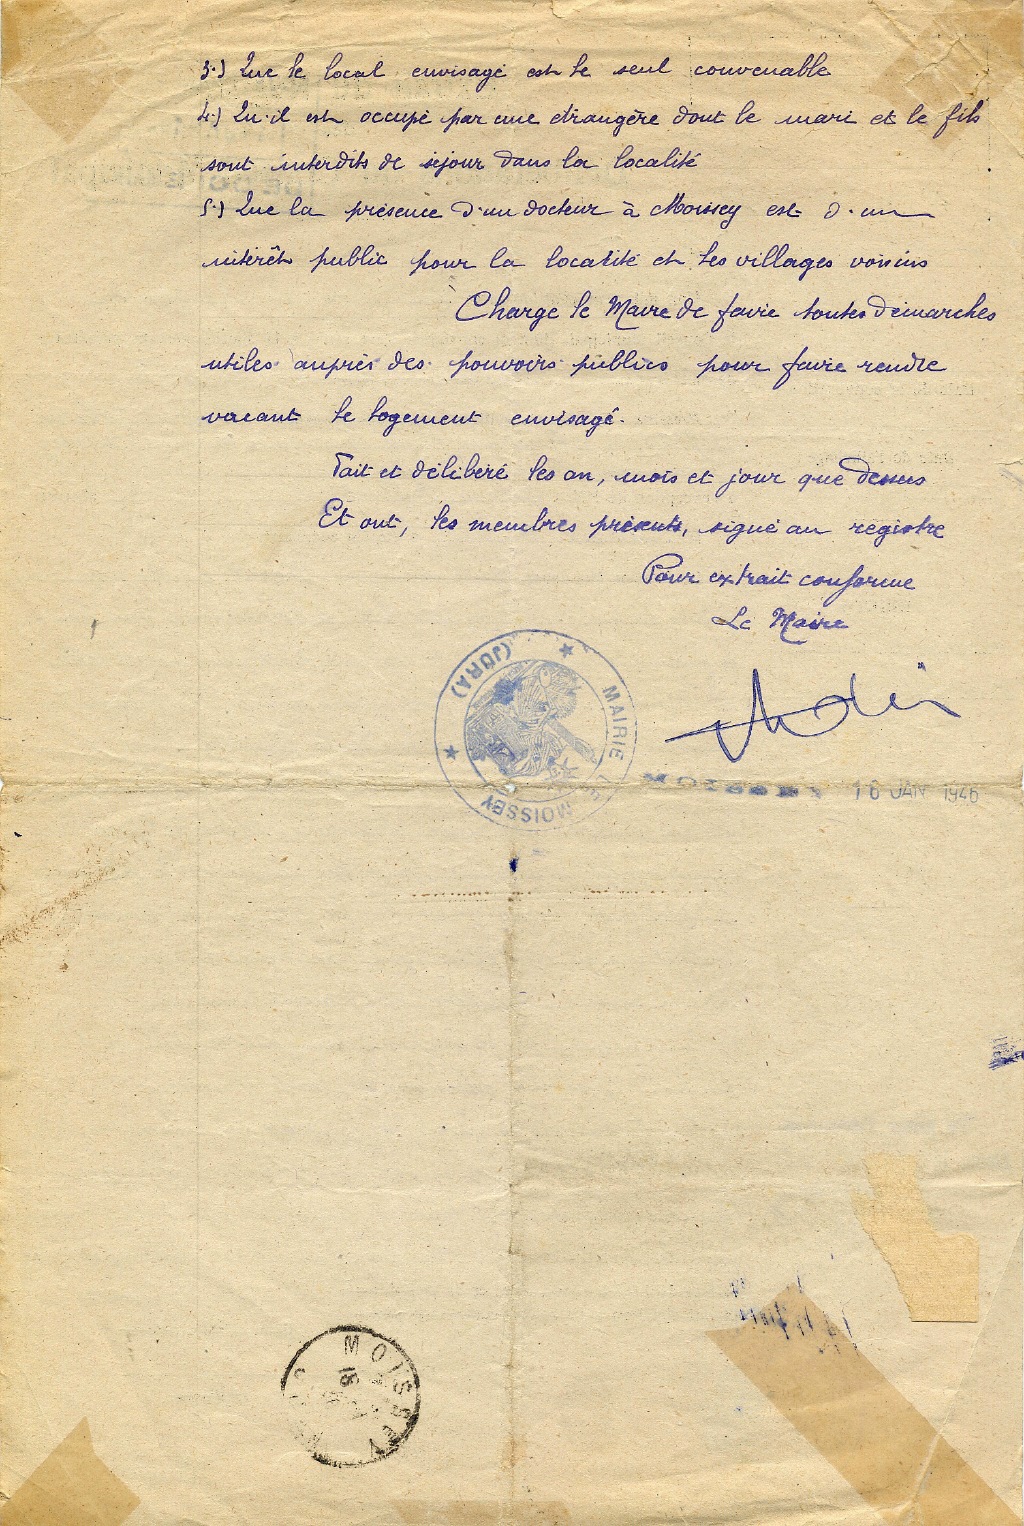 3.) Que le local envisagé est le seul convenable
4.) Qu'il est occupé par une étrangère dont le mari et le fils
sont interdits de séjour dans la localité
5.) Que la présence d'un docteur à Moissey est d'un
intérêt public pour la localité et les villages voisins
Charge le Maire de faire toutes démarches
utiles auprès des pouvoirs publics pour faire rendre
vacant le logement envisagé.
Fait et délibéré les an, mois et jour que dessus
Et ont, les membres présents, signé au registre
Pour extrait conforme
Le Maire
MAIRIE DE MOISSEY
(JURA)
16 JAN 1946
MOISSEY